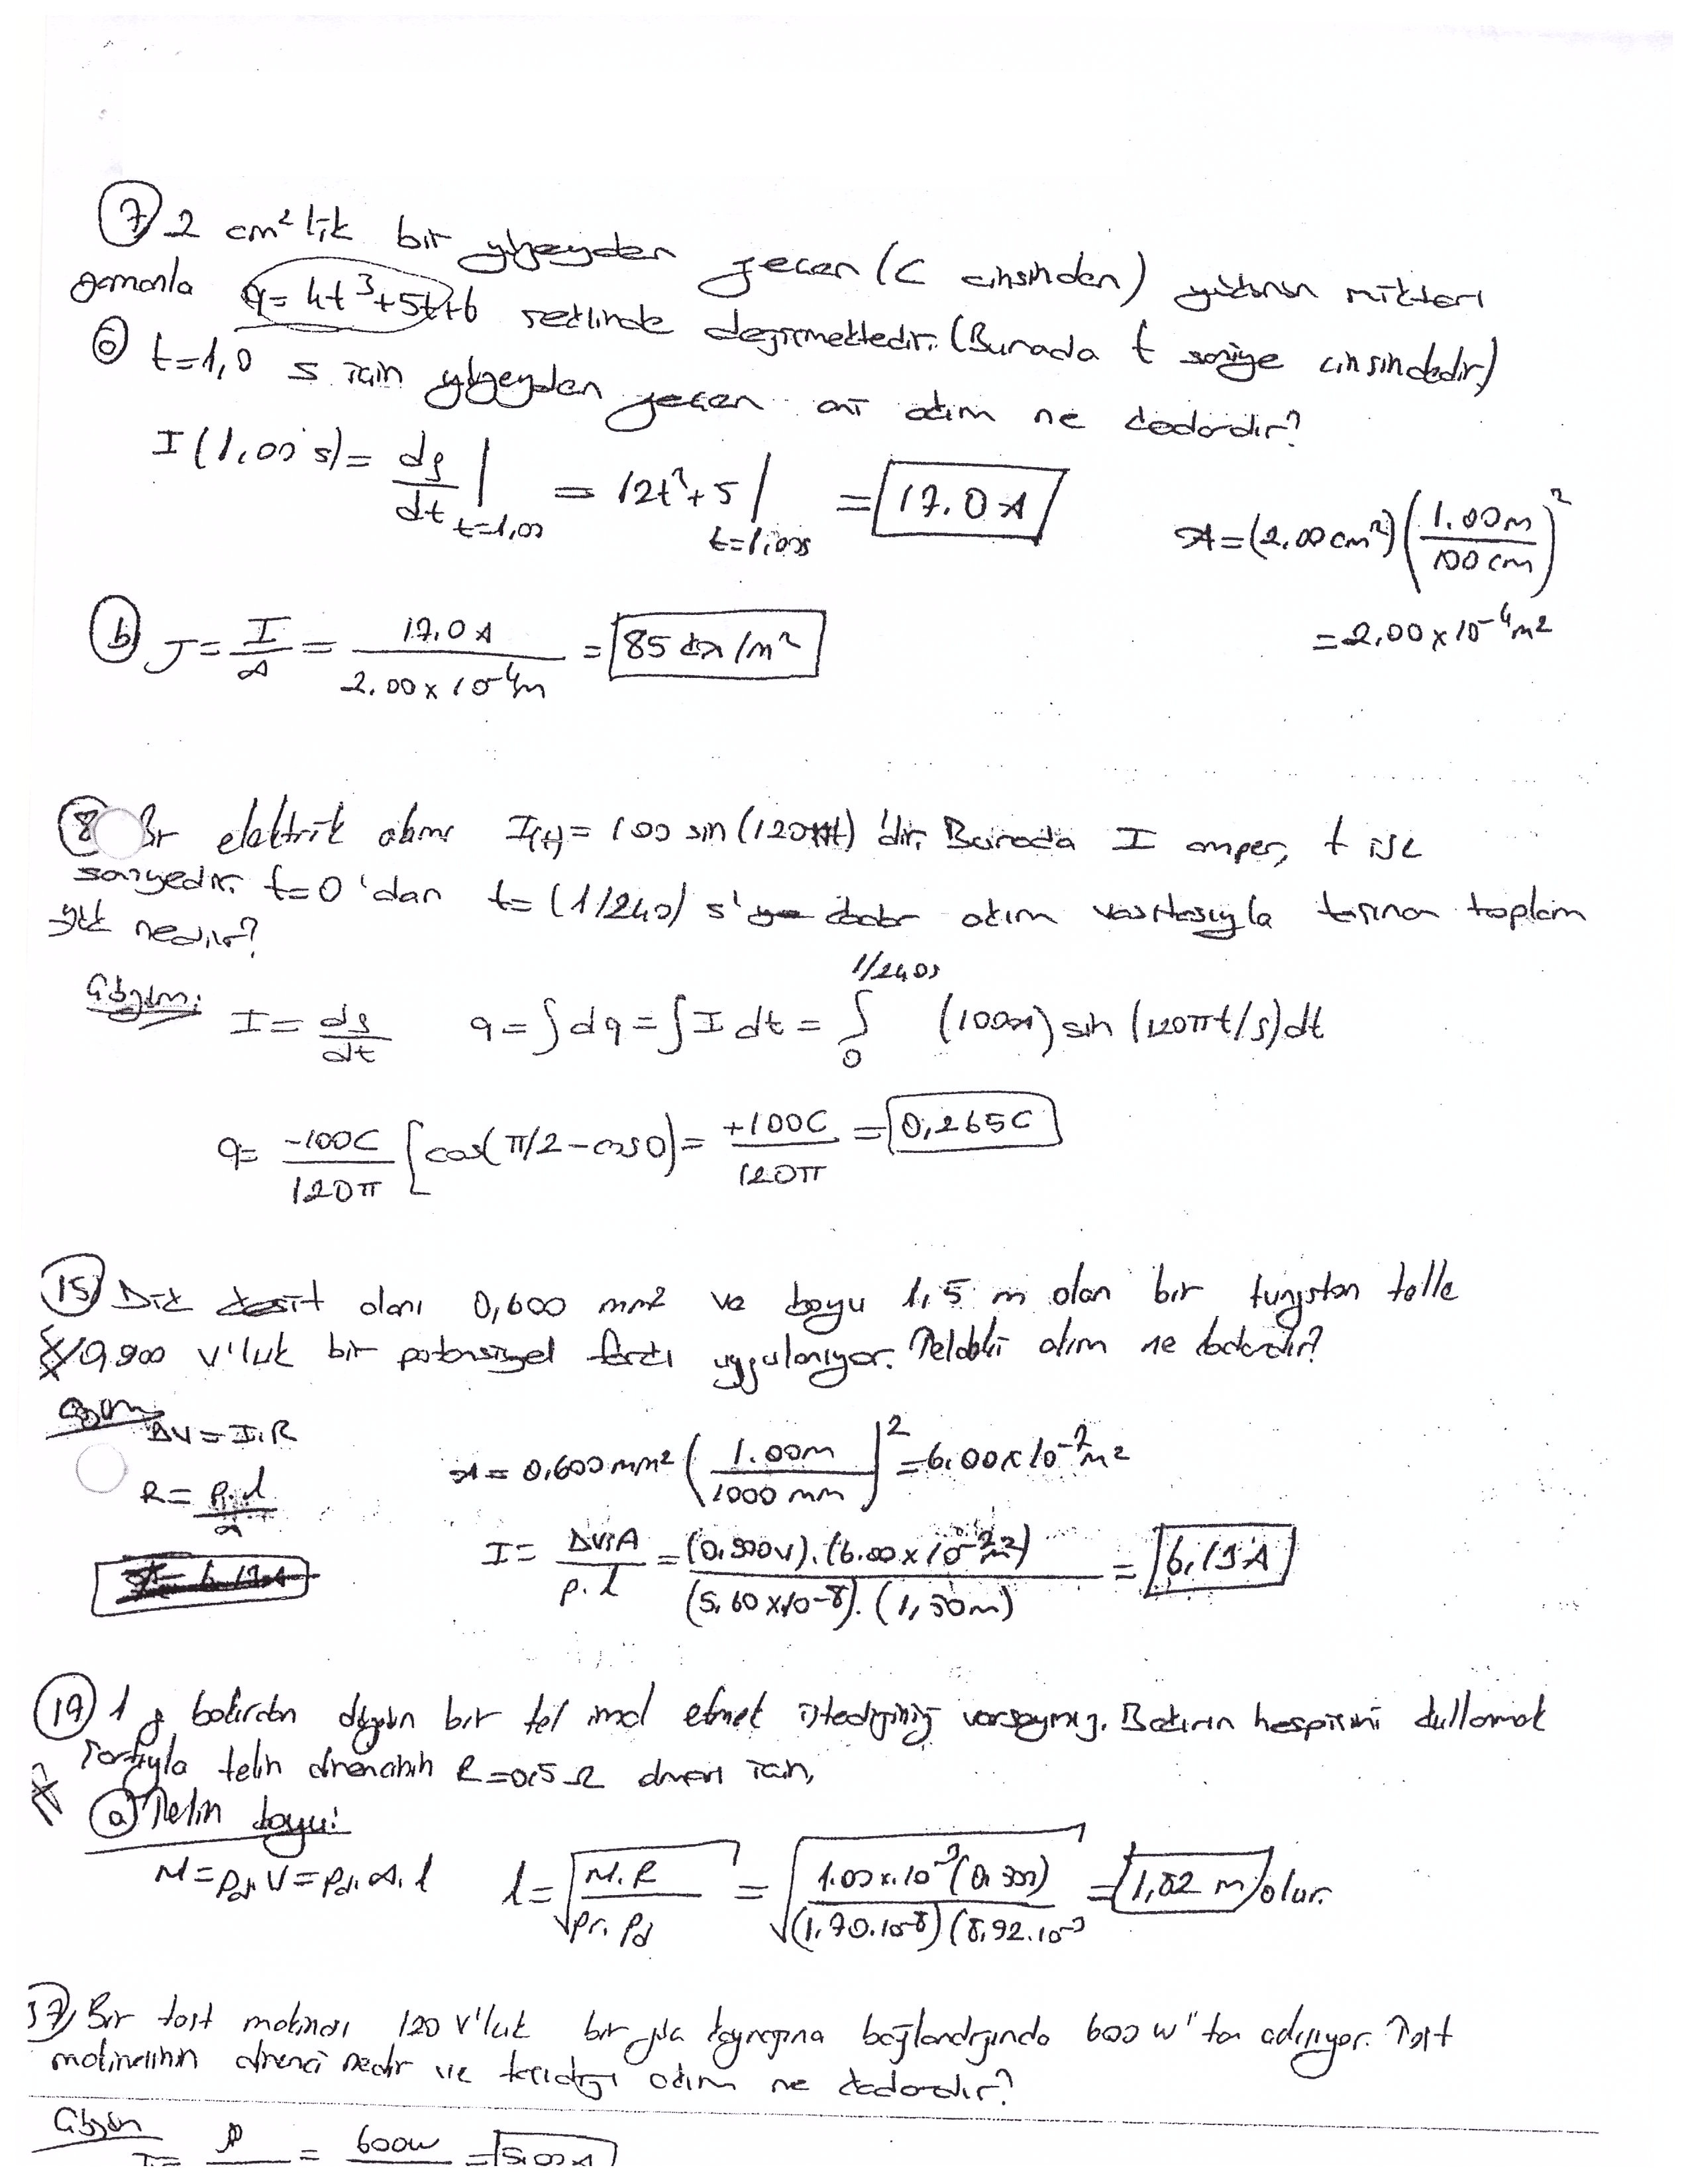 7) 2 cm² lik bir yüzeyden geçen (C cinsinden) yükünün miktarı
zamanla q = 4t³+5t+6 şeklinde değişmektedir. (Burada t saniye cinsindedir)
a) t=1,0 s için yüzeyden geçen ani akım ne kadardır?
I(1,00 s) = dq/dt |t=1,00 = 12t²+5 |t=1,00s = 17.0 A
A = (2,00 cm²)(1.00m/100 cm)²
= 2,00 x 10⁻⁴ m²
b) J = I/A = 17.0 A / 2.00 x 10⁻⁴ m = 85 kA/m²
8) Bir elektrik akımı I(t) = 100 sin(120πt) 'dir. Burada I amper, t ise
saniyedir. t=0 'dan t= (1/240) s'ye kadar akım vasıtasıyla taşınan toplam
yük nedir?
Çözüm: I = dq/dt q = ∫dq = ∫I dt = ∫₀^1/240s (100A) sin (120πt/s)dt
q = -100C/120π [cos(π/2 - cos0) = +100C/120π = 0,265C
15) Dik kesit alanı 0,600 mm² ve boyu 1,5 m olan bir tungsten telle
0,900 V'luk bir potansiyel farkı uygulanıyor. Teldeki akım ne kadardır?
Çözüm ΔV = I.R
A = 0,600 mm² (1.00m/1000 mm)² = 6.00x10⁻⁷ m²
R = ρ.l/A
I = ΔV.A/ρ.l = (0.900V).(6.00 x 10⁻⁷ m²)/(5,60 x10-8).(1,50m) = 6,43 A
19) 1 g bakırdan düzgün bir tel imal etmek istediğiniz varsayınız. Bakırın hepsini kullanmak
şartıyla telin direncinin R=0,5 Ω direnci için,
a) Telin boyu:
M = ρd.V = ρd.A.l l = √(M.R/ρr.ρd) = √(1.00x10⁻³(0.500)/(1,70.10⁻⁸)(8,92.10⁻³) = 1,82 m olur.
37) Bir tost makinası 120 V'luk bir güç kaynağına bağlandığında 600 W'ta çalışıyor. Tost
makinesinin direnci nedir ve taşıdığı akım ne kadardır?
Çözüm
I = P = 600W = 5.00 A